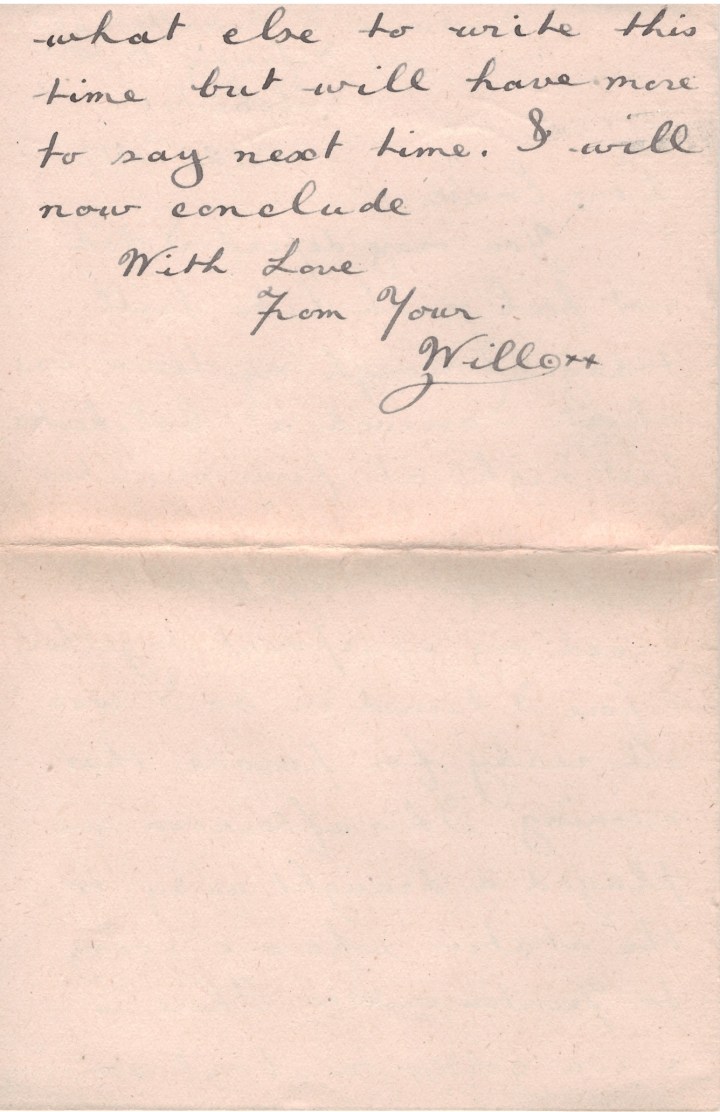 what else to write this
time but will have more
to say next time. I will
now conclude
With Love
From Your
Will
xx